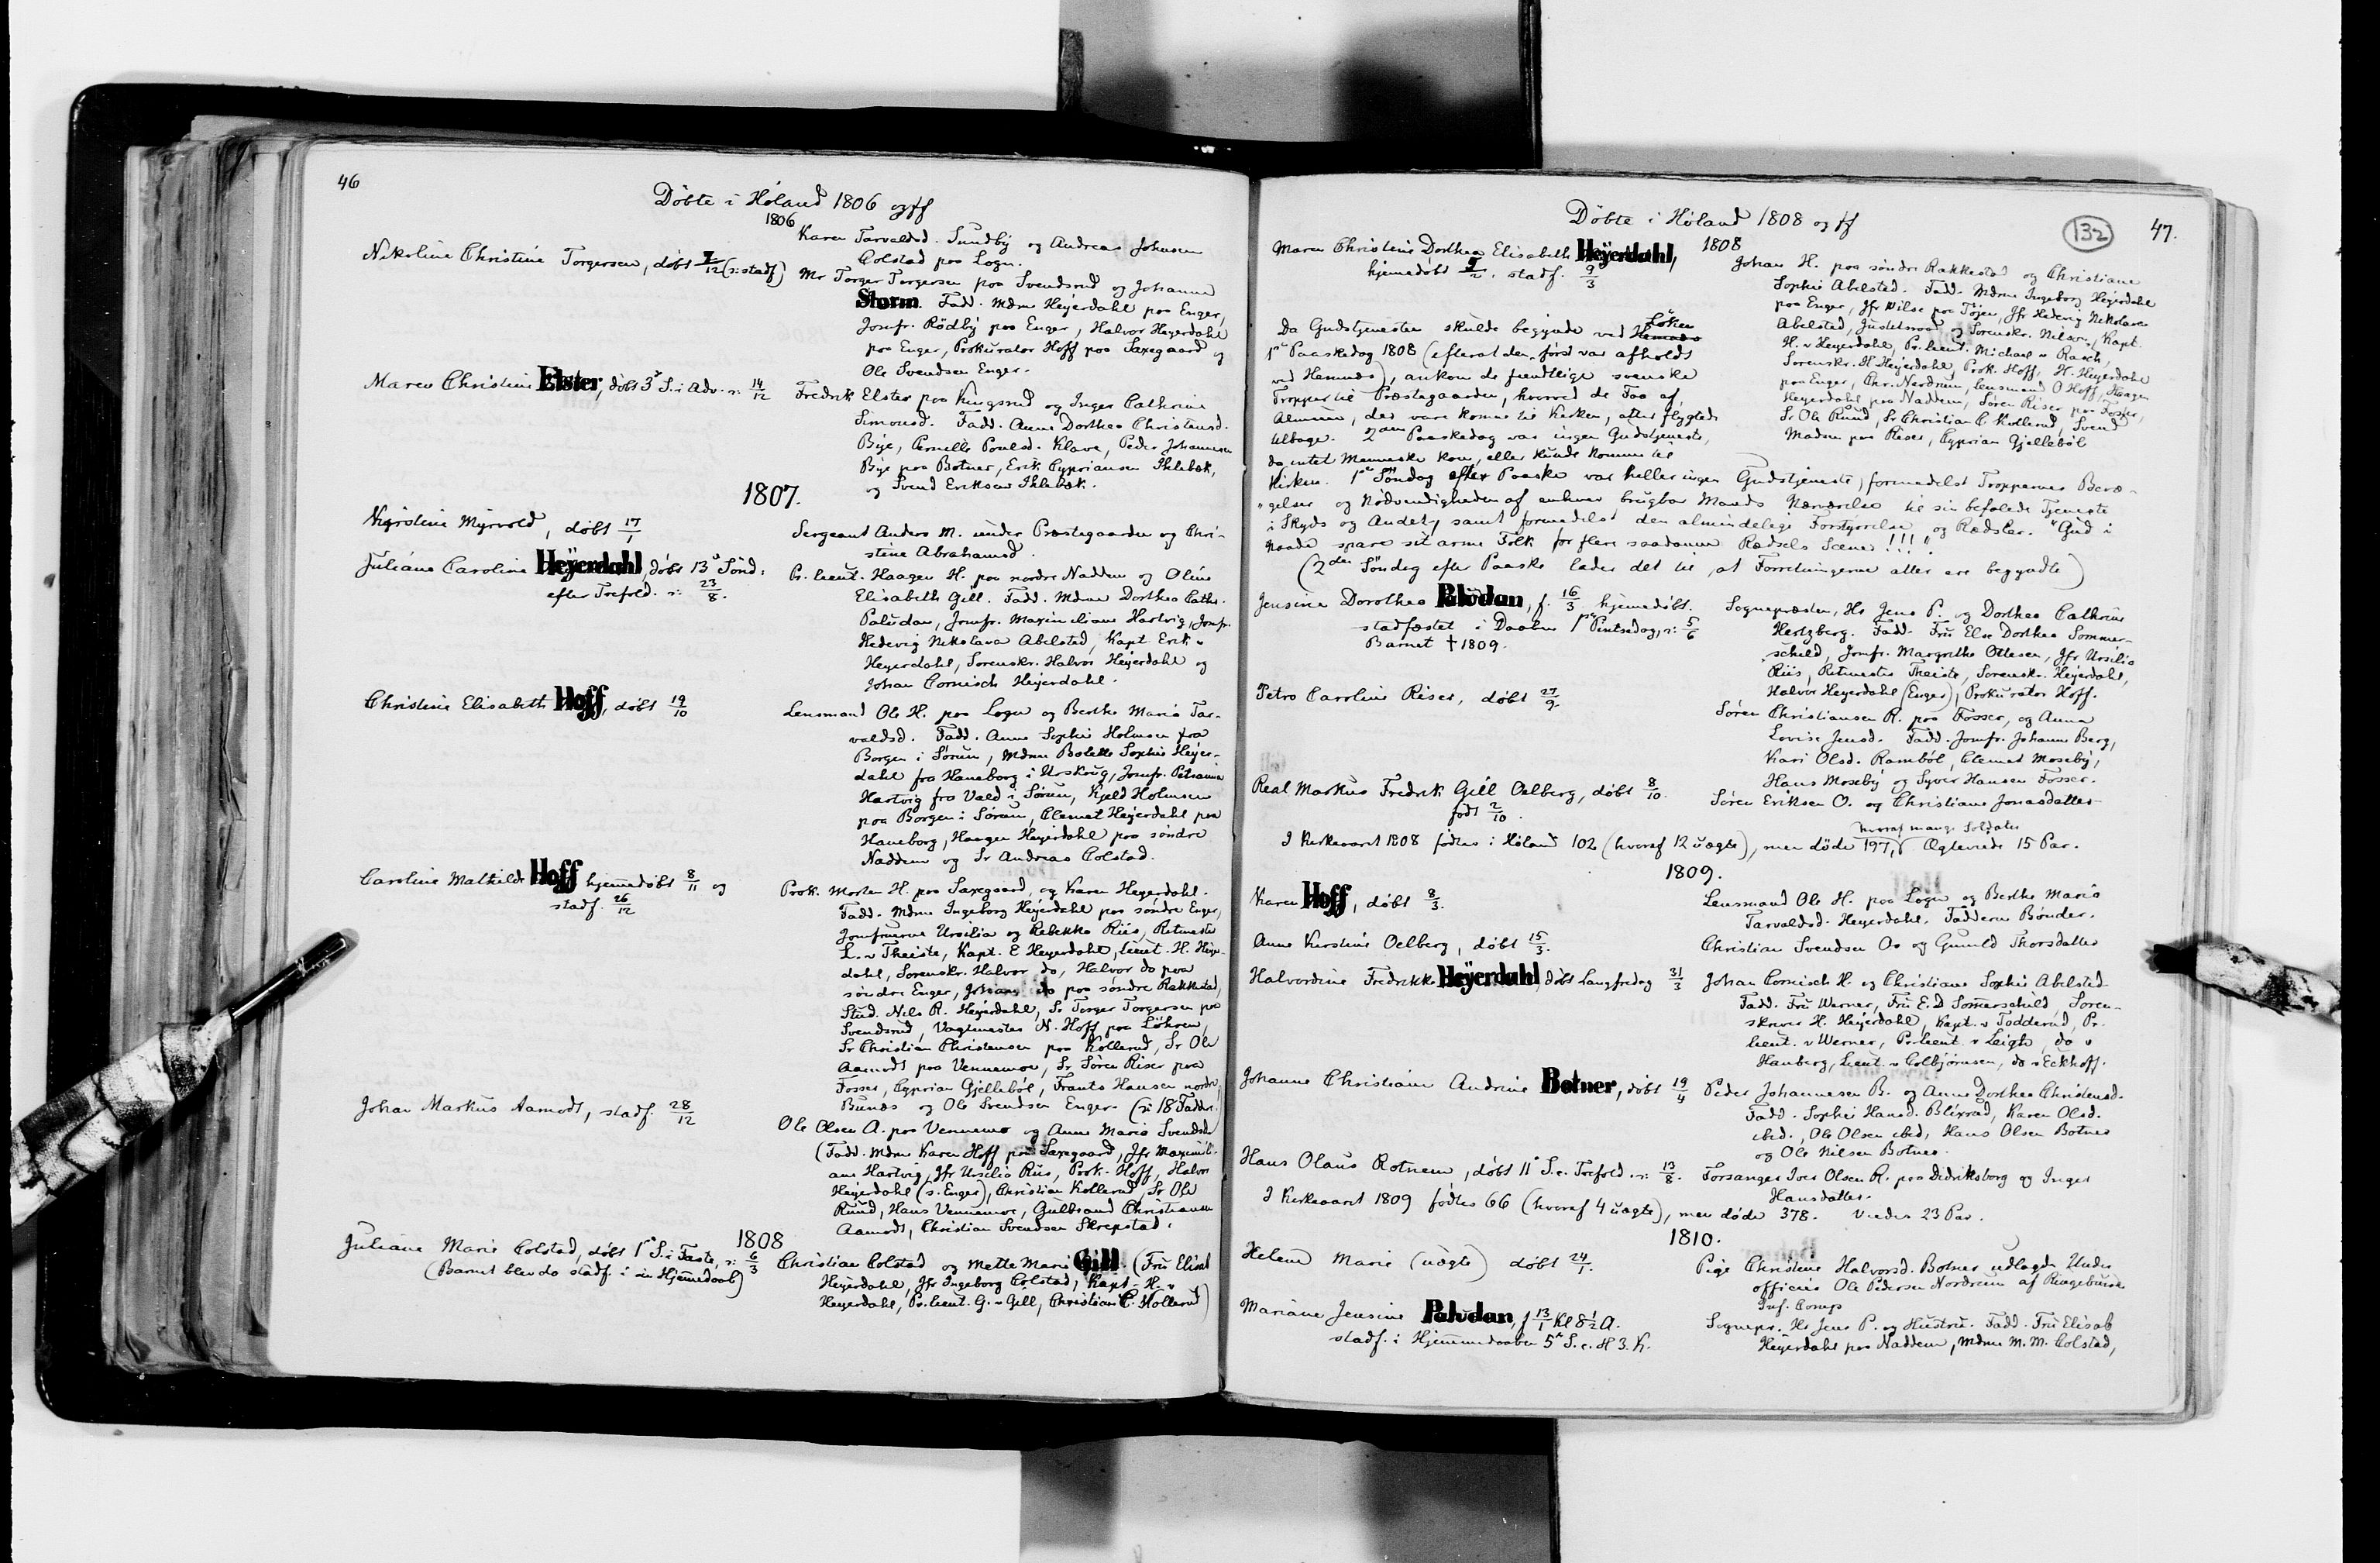 46
Döbte i Höland 1806 og ff
1806
Karen Tarvaldsd. Sundby og Andreas Johnsen
Colstad paa Logn.
Nikoline Christine Torgersen, döbt 7/12 (ɔ: stadf)
Mr Torger Torgersen paa Svendsrud og Johanne
Storm. Fadd. Mdme Heÿerdahl paa Enger,
Jomfr. Rödbÿ paa Enger, Halvor Heyerdahl
paa Enger, Prokurator Hoff paa Saxegaard og
Ole Svendsen Enger.
Maren Christine Elster, döbt 3' S. i Adv. ɔ: 14/12
Fredrik Elster paa Kingsrud og Inger Cathrine
Simonsd. Fadd. Anne Dorthea Christensd.
Bÿe, Pernelle Poulsd. Klave, Peder Johannesen
Bÿe paa Botner, Erik Cypriansen Ihlebæk,
og Svend Eriksen Ihlebæk.
1807.
Kirstine Mÿrvold, döbt 17/1
Sergeant Anders M. under Præstegaarden og Chri-
stine Abrahamsd.
Juliane Caroline Heÿerdahl, döbt 13' Sönd.
efter Trefold. ɔ: 23/8.
Pr. Lieut. Haagen H. paa nordre Naddum og Oline
Elisabeth Gill. Fadd. Mdme Dorthea Cathr.
Paludan, Jomfr. Maximiliane Hartvig, Jomfr.
Hedevig Nikolava Abelsted, Kapt Erik v
Heyerdahl, Sorenskr. Halvor Heÿerdahl og
Johan Cornisch Heÿerdahl.
Christine Elisabeth Hoff, döbt 19/10
Lensmand Ole H. paa Logn og Berthe Maria Tar-
valdsd. Fadd. Anne Sophie Holmsen fra
Borgen i Sörum, Mdme Bolette Sophie Heÿer-
dahl fra Haneborg i Urskoug, Jomfr. Petronine
Hartvig fra Vald i Sörum, Kjeld Holmsen
paa Borgen i Sörum, Clemet Heÿerdahl paa
Haneborg, Haagen Heÿerdahl paa söndre
Naddum og Sr Andreas Colstad.
Caroline Mathilde Hoff hjemedöbt 8/11 og
stadf. 26/12
Prok. Morten H. paa Saxegaard, og Karen Heyerdahl.
Fadd. Mdme Ingeborg Heÿerdahl paa söndre Enger,
Jomfruerne Ursilia og Rebekka Riis, Ritmester
L. v Theiste, Kapt. E Heyerdahl, Lieut. H. Heÿer-
dahl, Sorenskr. Halvor do, Halvor do paa
söndre Enger, Johan do paa söndre Rakkestad,
Stud. Nils R. Heÿerdahl, Sr Torger Torgersen paa
Svendsrud, Vagtmester N. Hoff paa Löhren,
Sr Christian Christensen paa Kollerud, Sr Ole
Aamodt paa Vennemoe, Sr Sören Riser paa
Fosser, Cyprian Gjelleböl, Frants Hansen nordre
Bunæs og Ole Svendsen Enger. (ɔ: 18 Faddr.
Johan Markus Aamodt, stadf. 28/12
Ole Olsen A. paa Vennemo og Anne Maria Svendsd.
(Fadd. Mdme Karen Hoff paa Saxegaard, Jfr Maximili-
ane Hartvig, Jfr Ursilia Riis, Prok. Hoff, Halvor
Heÿerdahl (s. Enger), Christian Kollerud, Sr Ole
Rund, Hans Vennemoe, Gulbrand Christiansen
Aamodt, Christian Svendsen Skrepstad.
1808
Juliane Marie Colstad, döbt 1' S. i Faste, ɔ: 6/3
(Barnet blev da stadf. i sin Hjemmedaab)
Christian Colstad og Mette Marie Gill. (Fru Elisab
Heÿerdahl, Jfr Ingeborg Colstad, Kapt. H. v
Heyerdahl, Pr. Lieut. G. v Gill, Christian C. Kollerud)
132
47.
Döbte i Höland 1808 og ff
1808
Maren Christine Dorthea Elisabeth Heÿerdahl,
hjemedöbt 9/2. stadf. 9/3
Johan H. paa söndre Rakkestad og Christiane
Sophie Abelsted. Fadd. Mdme Ingeborg Heÿerdahl
paa Enger, Jfr Wilse paa Töyen, Jfr Hedevig Nikolava
Abelsted, Justitsraad og Sorenskr. Nilsen, Kapt.
H. v Heyerdahl, Pr. Lieut. Michael v Rasch,
Sorenskr. H Heyerdahl, Prok. Hoff, H. Heyerdahl
paa Enger, Chr. Nordrum, Lensmand O Hoff, Haagen
Heyerdahl paa Naddum, Sören Riser paa Fosser,
Sr Ole Rund, Sr Christian C. Kollerud, Svend
Madsen paa Riser, Cyprian Gjelleböl
Da Gudstjenesten skulde begynde ved Hemnæs Löken
1' Paaskedag 1808 (efterat den först var afholdt
ved Hemnæs), ankom de fiendtlige svenske
Tropper til Præstegaarden, hvorved de Faa af
Almuen, der vare komne til Kirken, atter flygtede
tilbage. 2den Paaskedag var ingen Gudstjeneste,
da intet Menneske kom, eller kunde komme til
Kirken. 1' Söndag efter Paaske var heller ingen Gudstjeneste, formedelst Troppernes Bevæ-
gelser og Nödvendigheden af enhver brugbar Mands Nærværelse til sin befalede Tjeneste
i Skyds og Andet, samt formedelst den almindelige Forstyrrelse og Rædsler. "Gud i
Naade spare sit arme Folk for flere saadanne Rædsels Scener!!!"
(2den Söndag efter Paaske lader det til, at Forretningerne atter ere begyndte)
Jensine Dorothea Paludan, f. 16/3 hjemedöbt.
stadfæstet i Daaben 1' Pintsedag, ɔ: 5/6
Barnet † 1809.
Sognepræsten, Hr Jens P. og Dorthea Cathrine
Hertzberg. Fadd. Fru Else Dorthea Sommer-
schild, Jomfr. Margrethe Ottesen, Jfr Ursilia
Riis, Ritmester Theiste, Sorenskr. Heyerdahl,
Halvor Heyerdahl (Enger), Prokurator Hoff.
Petra Caroline Riser, döbt 27/9
Sören Christiansen R. paa Fosser, og Anna
Lovise Jensd. Fadd. Jomfr. Johanne Berg,
Kari Olsd. Ramböl, Clemet Mosebÿ,
Hans Mosebÿ og Syver Hansen Fosser.
Real Markus Fredrik Gill Oelberg, döbt 8/10.
födt 2/10.
Sören Eriksen O. og Christiane Jonasdatter
I Kirkeaaret 1808 födtes i Höland 102 (hvoraf 12 uægte), men döde 197, hvoraf mange Soldater Ægteviede 15 Par.
1809.
Karen Hoff, döbt 8/3.
Lensmand Ole H. paa Logn og Berthe Maria
Tarvaldsd. Heyerdahl. Fadderne Bönder.
Anne Kirstine Oelberg, döbt 15/3.
Christian Svendsen Oe og Gunild Thorsdatter
Halvordine Fredrikke Heÿerdahl, döbt Langfredag 31/3
Johan Cornisch H. og Christiane Sophie Abelsted
Fadd. Fru Werner, Fru E. D Somerschild, Soren-
skriver H. Heÿerdahl, Kapt. v Todderud, Pr.
Lieut. v Werner, Pr Lieut. v Leigh, do v
Hauberg, Lieut. v Colbjörnsen, do v Eckhoff.
Johanne Christiane Andrine Botner, döbt 19/4
Peder Johannesen B. og Anne Dorthea Christensd.
Fadd. Sophie Hansd. Blixrud, Karen Olsd.
ibid., Ole Olsen ibid, Hans Olsen Botner
og Ole Nilsen Botner.
Hans Olaus Rotnem, döbt 11' S. e. Trefold. ɔ: 13/8.
Forsanger Iver Olsen R. paa Didriksborg og Inger
Hansdatter.
I Kirkeaaret 1809 födtes 66 (hvoraf 4 uægte), men döde 378. Viedes 23 Par.
1810.
Helene Marie (uægte) döbt 24/1.
Pige Christine Halvorsd. Botner udlagde Under
officier Ole Pedersen Nordrum af
Inf. Comp
Mariane Jensine Paludan, f 13/1 Kl 8½ A.
stadf. i Hjemmedaaben 5' S. e. H 3. K.
Sognepr. Hr Jens P. og Hustru. Fadd. Fru Elisab
Heÿerdahl paa Naddum, Mdme M. M. Colstad,